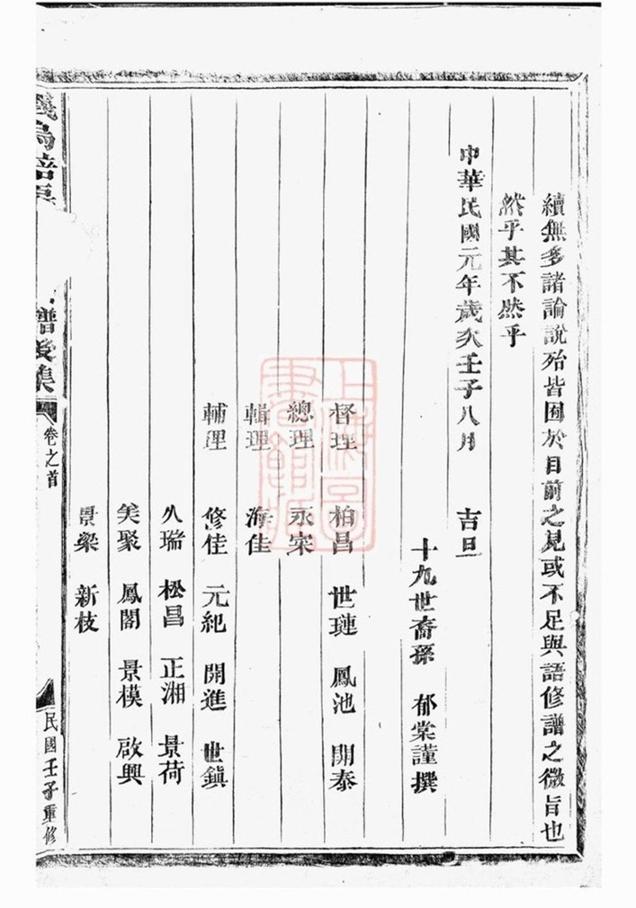 續無多諸論說殆皆囿於目前之見或不足與語修譜之微旨也
然乎其不然乎
中華民國元年歲次壬子八月　吉旦
十九世裔孫　郁棠謹撰
督理　柏昌　世璉　鳳池　開泰
總理　永宋
輯理　海佳
輔理　修佳　元紀　開進　世鎮
久瑞　松昌　正湘　景荷
美聚　鳳閣　景模　啟興
景梁　新枝
譜後集　卷之首　民國壬子重修